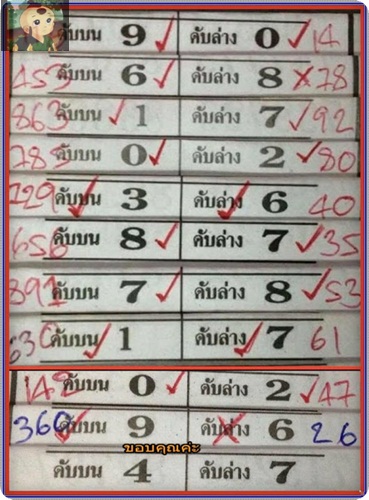 ดับบน 9 ✓ ดับล่าง 0 ✓ 14
453 ดับบน 6 ✓ ดับล่าง 8 ✗ 78
863 ดับบน ✓ 1 ดับล่าง 7 ✓ 92
785 ดับบน 0 ✓ ดับล่าง 2 ✓ 80
229 ดับบน ✓ 3 ดับล่าง ✓ 6 40
656 ดับบน 8 ✓ ดับล่าง 7 ✓ 35
891 ดับบน 7 ✓ ดับล่าง 8 ✓ 53
636 ดับบน ✓ 1 ดับล่าง ✓ 7 61
148 ดับบน 0 ✓ ดับล่าง 2 ✓ 47
366 ดับบน ✓ 9 ดับล่าง ✗ 6 26
ขอบคุณค่ะ
ดับบน 4 ดับล่าง 7